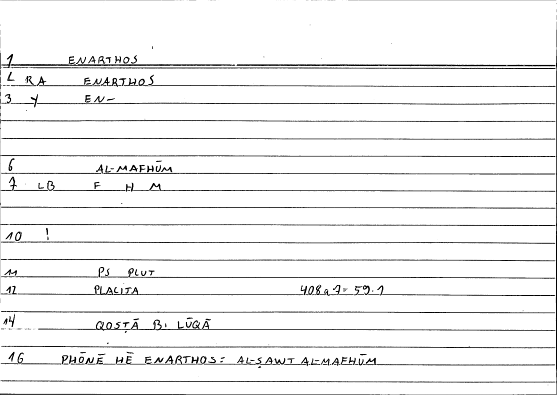 1 ENARTHOS
L RA ENARTHOS
3 Y EN-
6 AL-MAFHŪM
7 LB F H M
10 !
11 PS PLUT
12 PLACITA 408a7=59.1
14 QOSṬĀ B. LŪQĀ
16 PHŌNĒ HĒ ENARTHOS: AL-ṢAWT AL-MAFHŪM